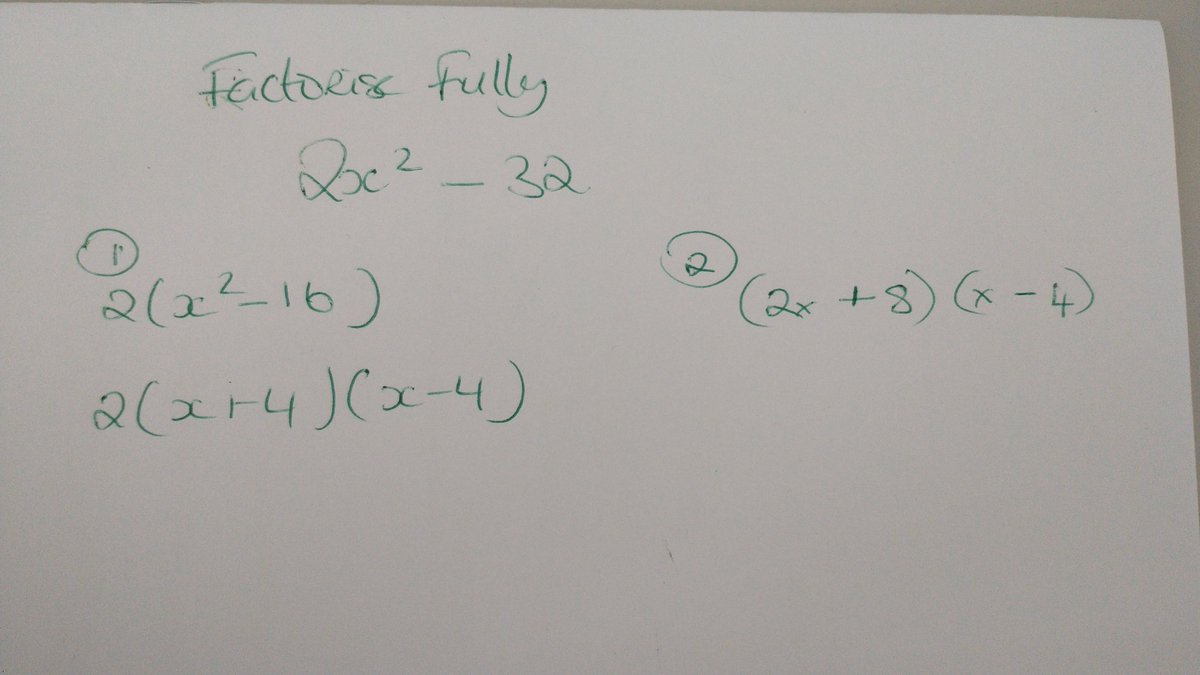 Factorise Fully
2x² - 32
①
2(x²-16)
2(x+4)(x-4)
②
(2x + 8)(x - 4)